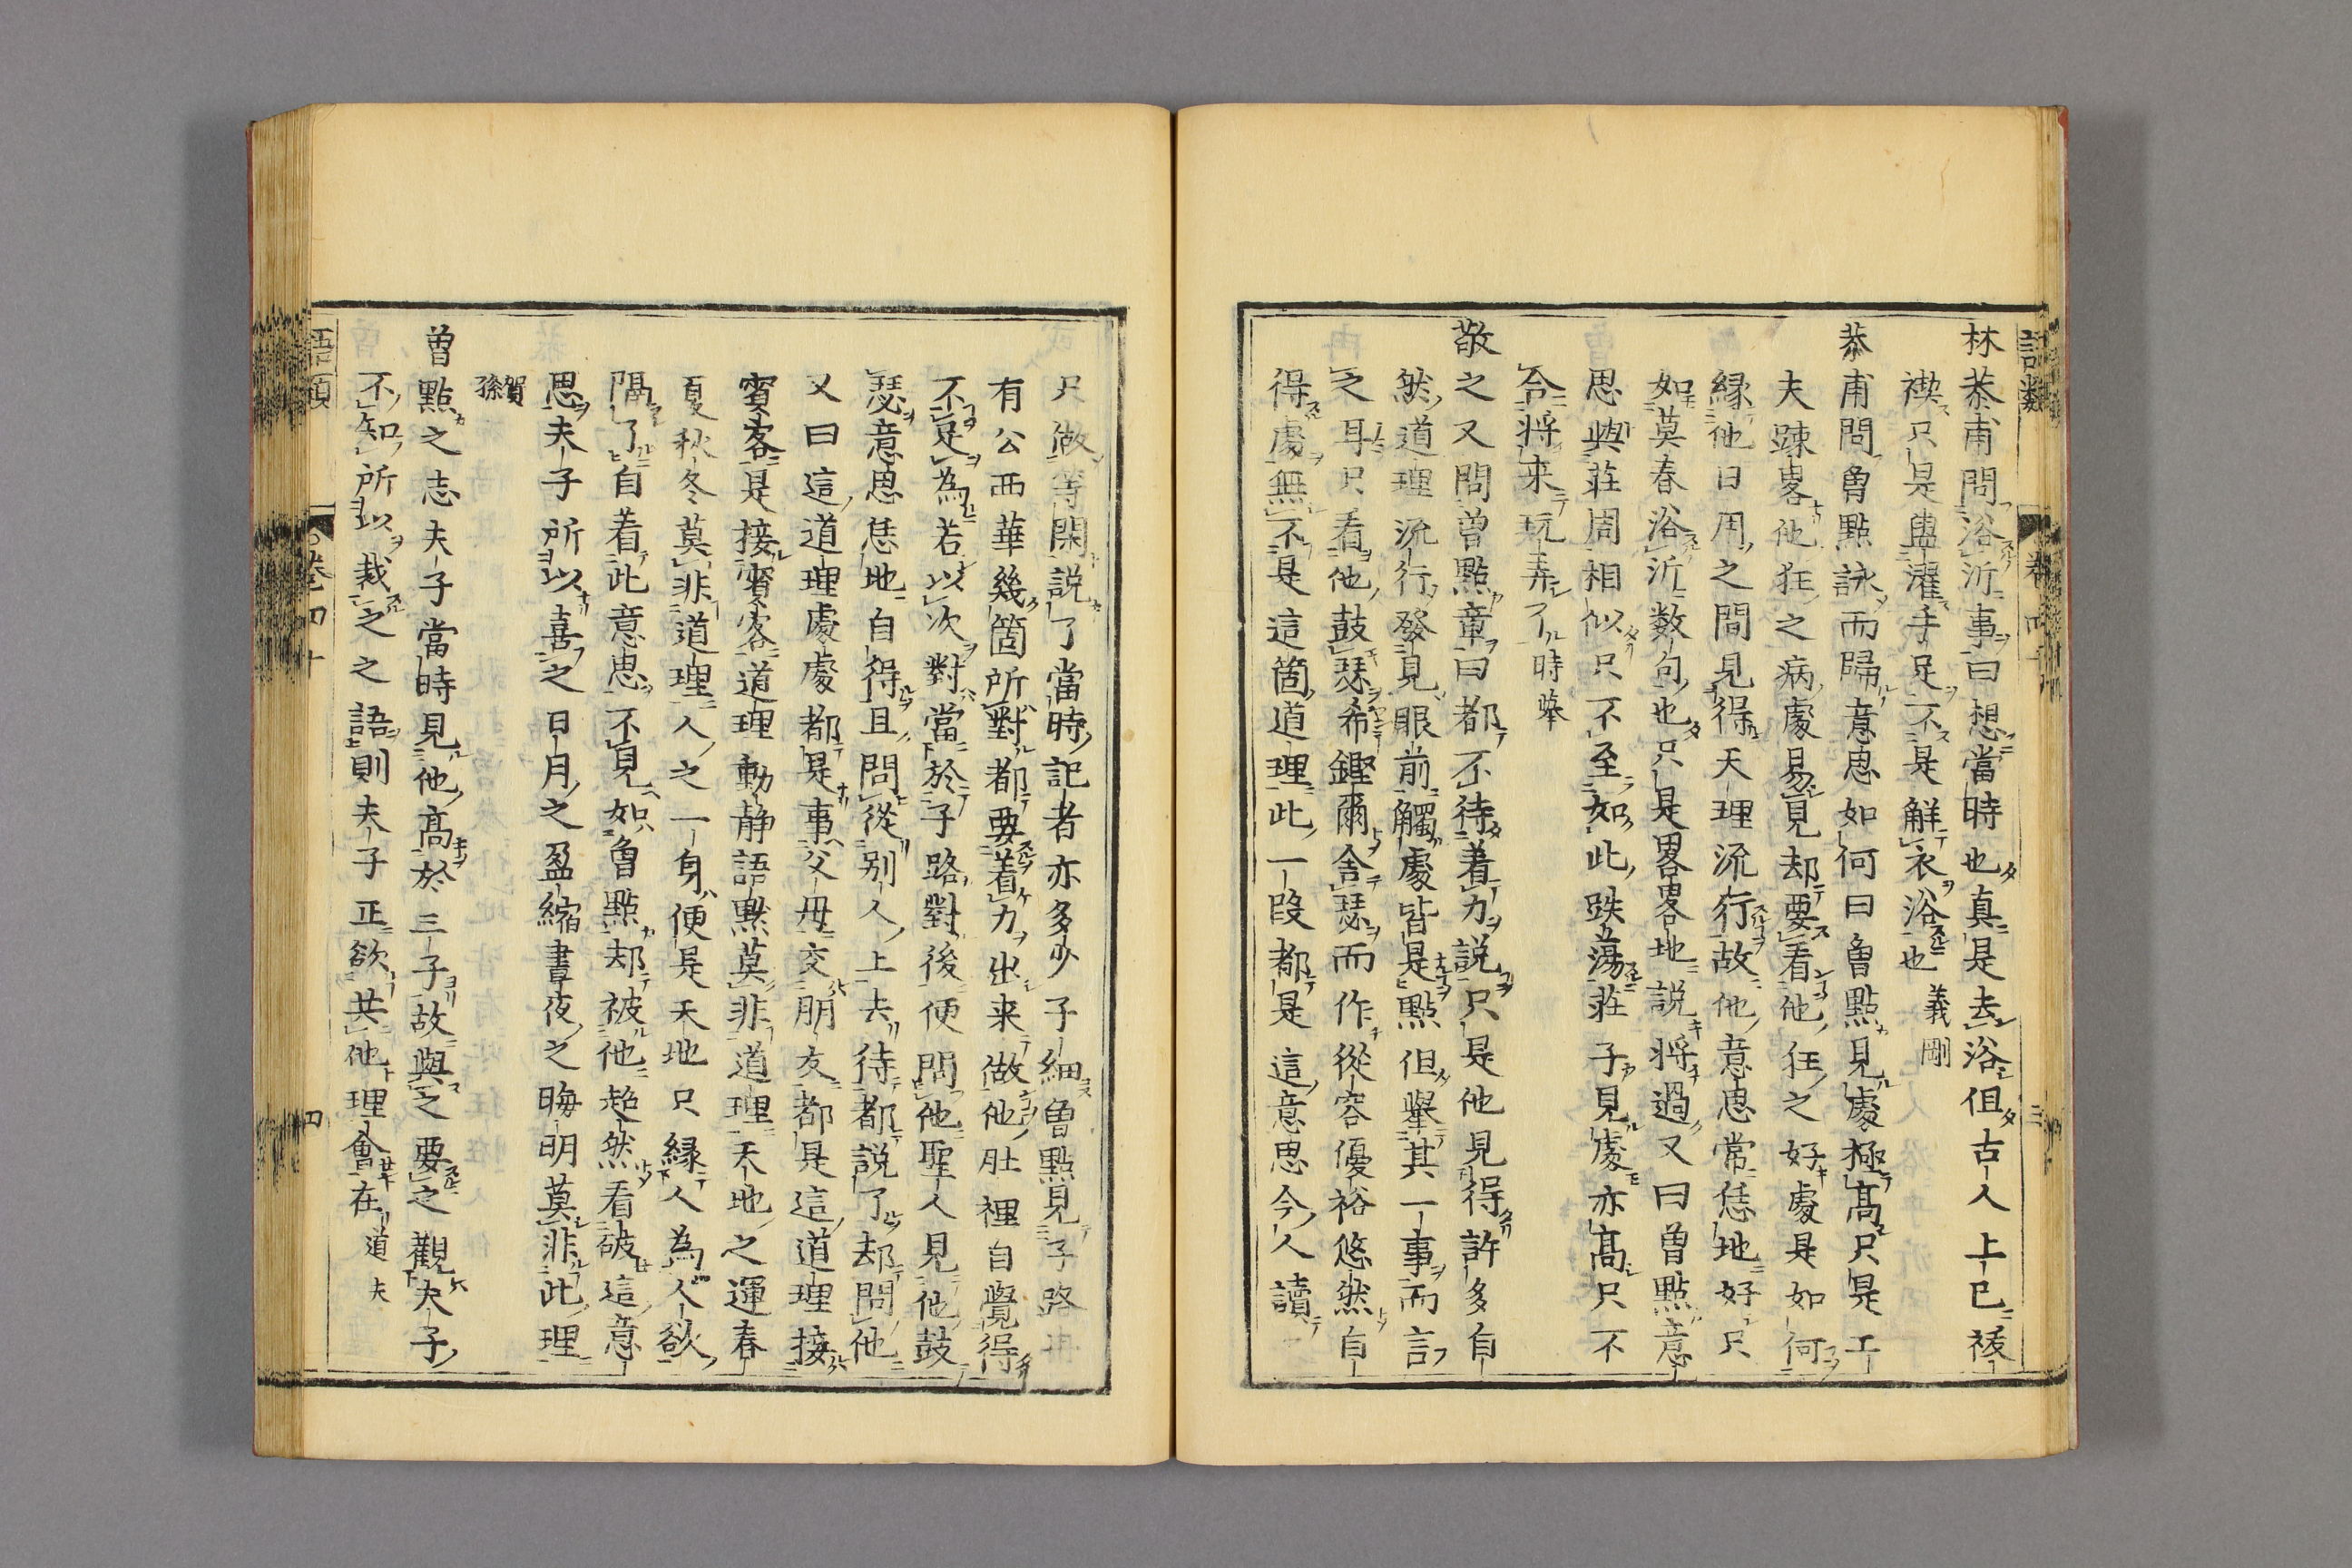 語類
卷四十
三
林恭甫問浴沂事曰想當時也真是去浴但古人上巳祓
禊只是盥濯手足不是解衣浴也義剛
恭甫問曾點詠而歸意思如何曰曾點見處極髙只是工
夫踈畧他狂之病處易見却要看他狂之好處是如何
縁他日用之間見得天理流行故他意思常恁地好只
如莫春浴沂數句也只是畧畧地說將過又曰曾點意
思與莊周相似只不至如此跌蕩莊子見處亦髙只不
合將来玩弄了時舉
敬之又問曾點章曰都不待着力說只是他見得許多自
然道理流行發見眼前觸處皆是點但舉其一事而言
之耳只看他鼓瑟希鏗爾舍瑟而作從容優裕悠然自
得處無不是這箇道理此一段都是這意思今人讀
只做等閑說了當時記者亦多少子細曾點見子路冉
有公西華幾箇所對都要着力出来做他肚裡自覺得
不足為若以次對當於子路對後便問他聖人見他鼓
瑟意思恁地自得且問從别人上去待都說了却問他
又曰這道理處處都是事父母交朋友都是這道理接
賓客是接賓客道理動静語黙莫非道理天地之運春
夏秋冬莫非道理人之一身便是天地只縁人為人欲
隔了自着此意思不見如曾點却被他超然看破這意
思夫子所以喜之日月之盈縮晝夜之晦明莫非此理
賀孫
曾點之志夫子當時見他髙於三子故與之要之觀夫子
不知所以裁之之語則夫子正欲共他理會在道夫
語類
卷四十
四